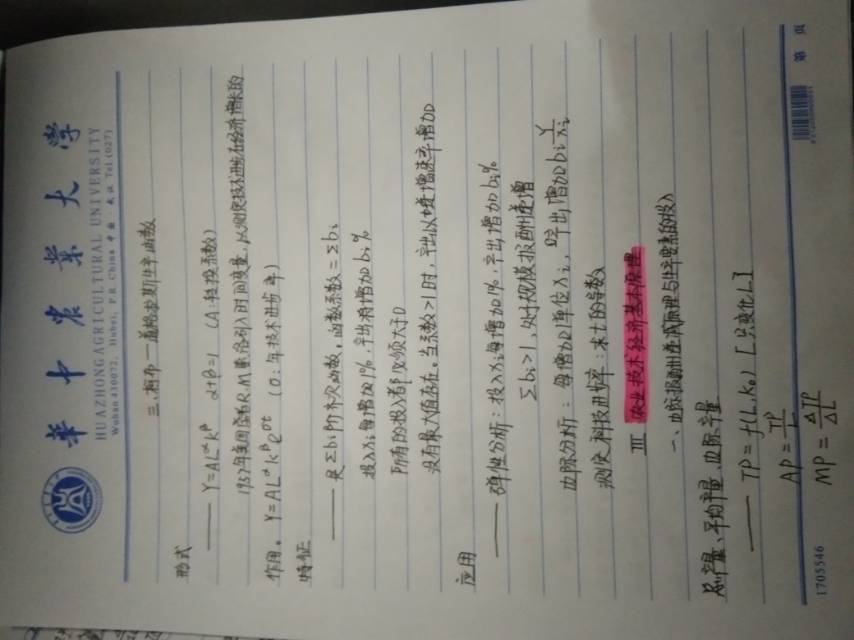 華中农業大学
HUAZHONG AGRICULTURAL UNIVERSITY
Wuhan 430072, Hubei, P.R. China 中国·武汉 Tel.(027)
三、柯布—道格拉斯生产函数
形式
—— Y=AL^α k^β α+β=1 (A:转换系数)
1957年美国经济学家R.M索洛引入时间变量,以测度技术进步在经济增长的
作用。Y=AL^α k^β e^σt (σ:年技术进步率)
特征
—— 是Σbi阶齐次函数。函数系数=Σbi
投入xi每增加1%,产出将增加bi%
所有的投入都必须大于0
没有最大值存在。当系数>1时,产出以递增速率增加
应用
—— 弹性分析:投入xi每增加1%,产出增加bi%
Σbi>1,处于规模报酬递增
边际分析:每增加1单位xi,产出增加bi Y/xi
测定科技进步率:求t的导数
III 农业技术经济基本原理
一、边际报酬递减原理与生产要素的投入
总产量、平均产量、边际产量
—— TP=f(L,k₀) [只变化L]
AP=TP/L
MP=ΔTP/ΔL
1705546
第 页